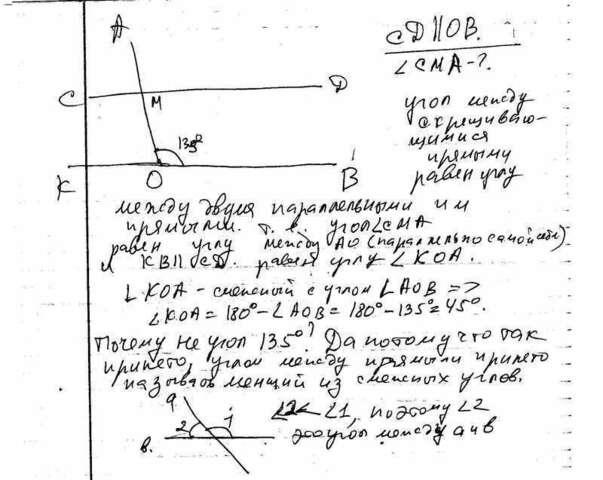 A
CD||OB.
∠CMA-?
C
M
D
135°
K
O
B
угол между
скрещиваю-
щимися
прямыми
равен углу
между двумя параллельными им
прямыми. т. е. угол∠CMA
равен углу между AO (параллельно самой себе)
и KB||CD. равен углу ∠KOA.
∠KOA - смежный с углом ∠AOB =>
∠KOA = 180°-∠AOB = 180°-135°=45°.
Почему не угол 135°? Да потому что так
принято, углом между прямыми принято
называть менший из смежных углов.
a.
2
1
в.
∠2<∠1, поэтому ∠2
это угол между a и в